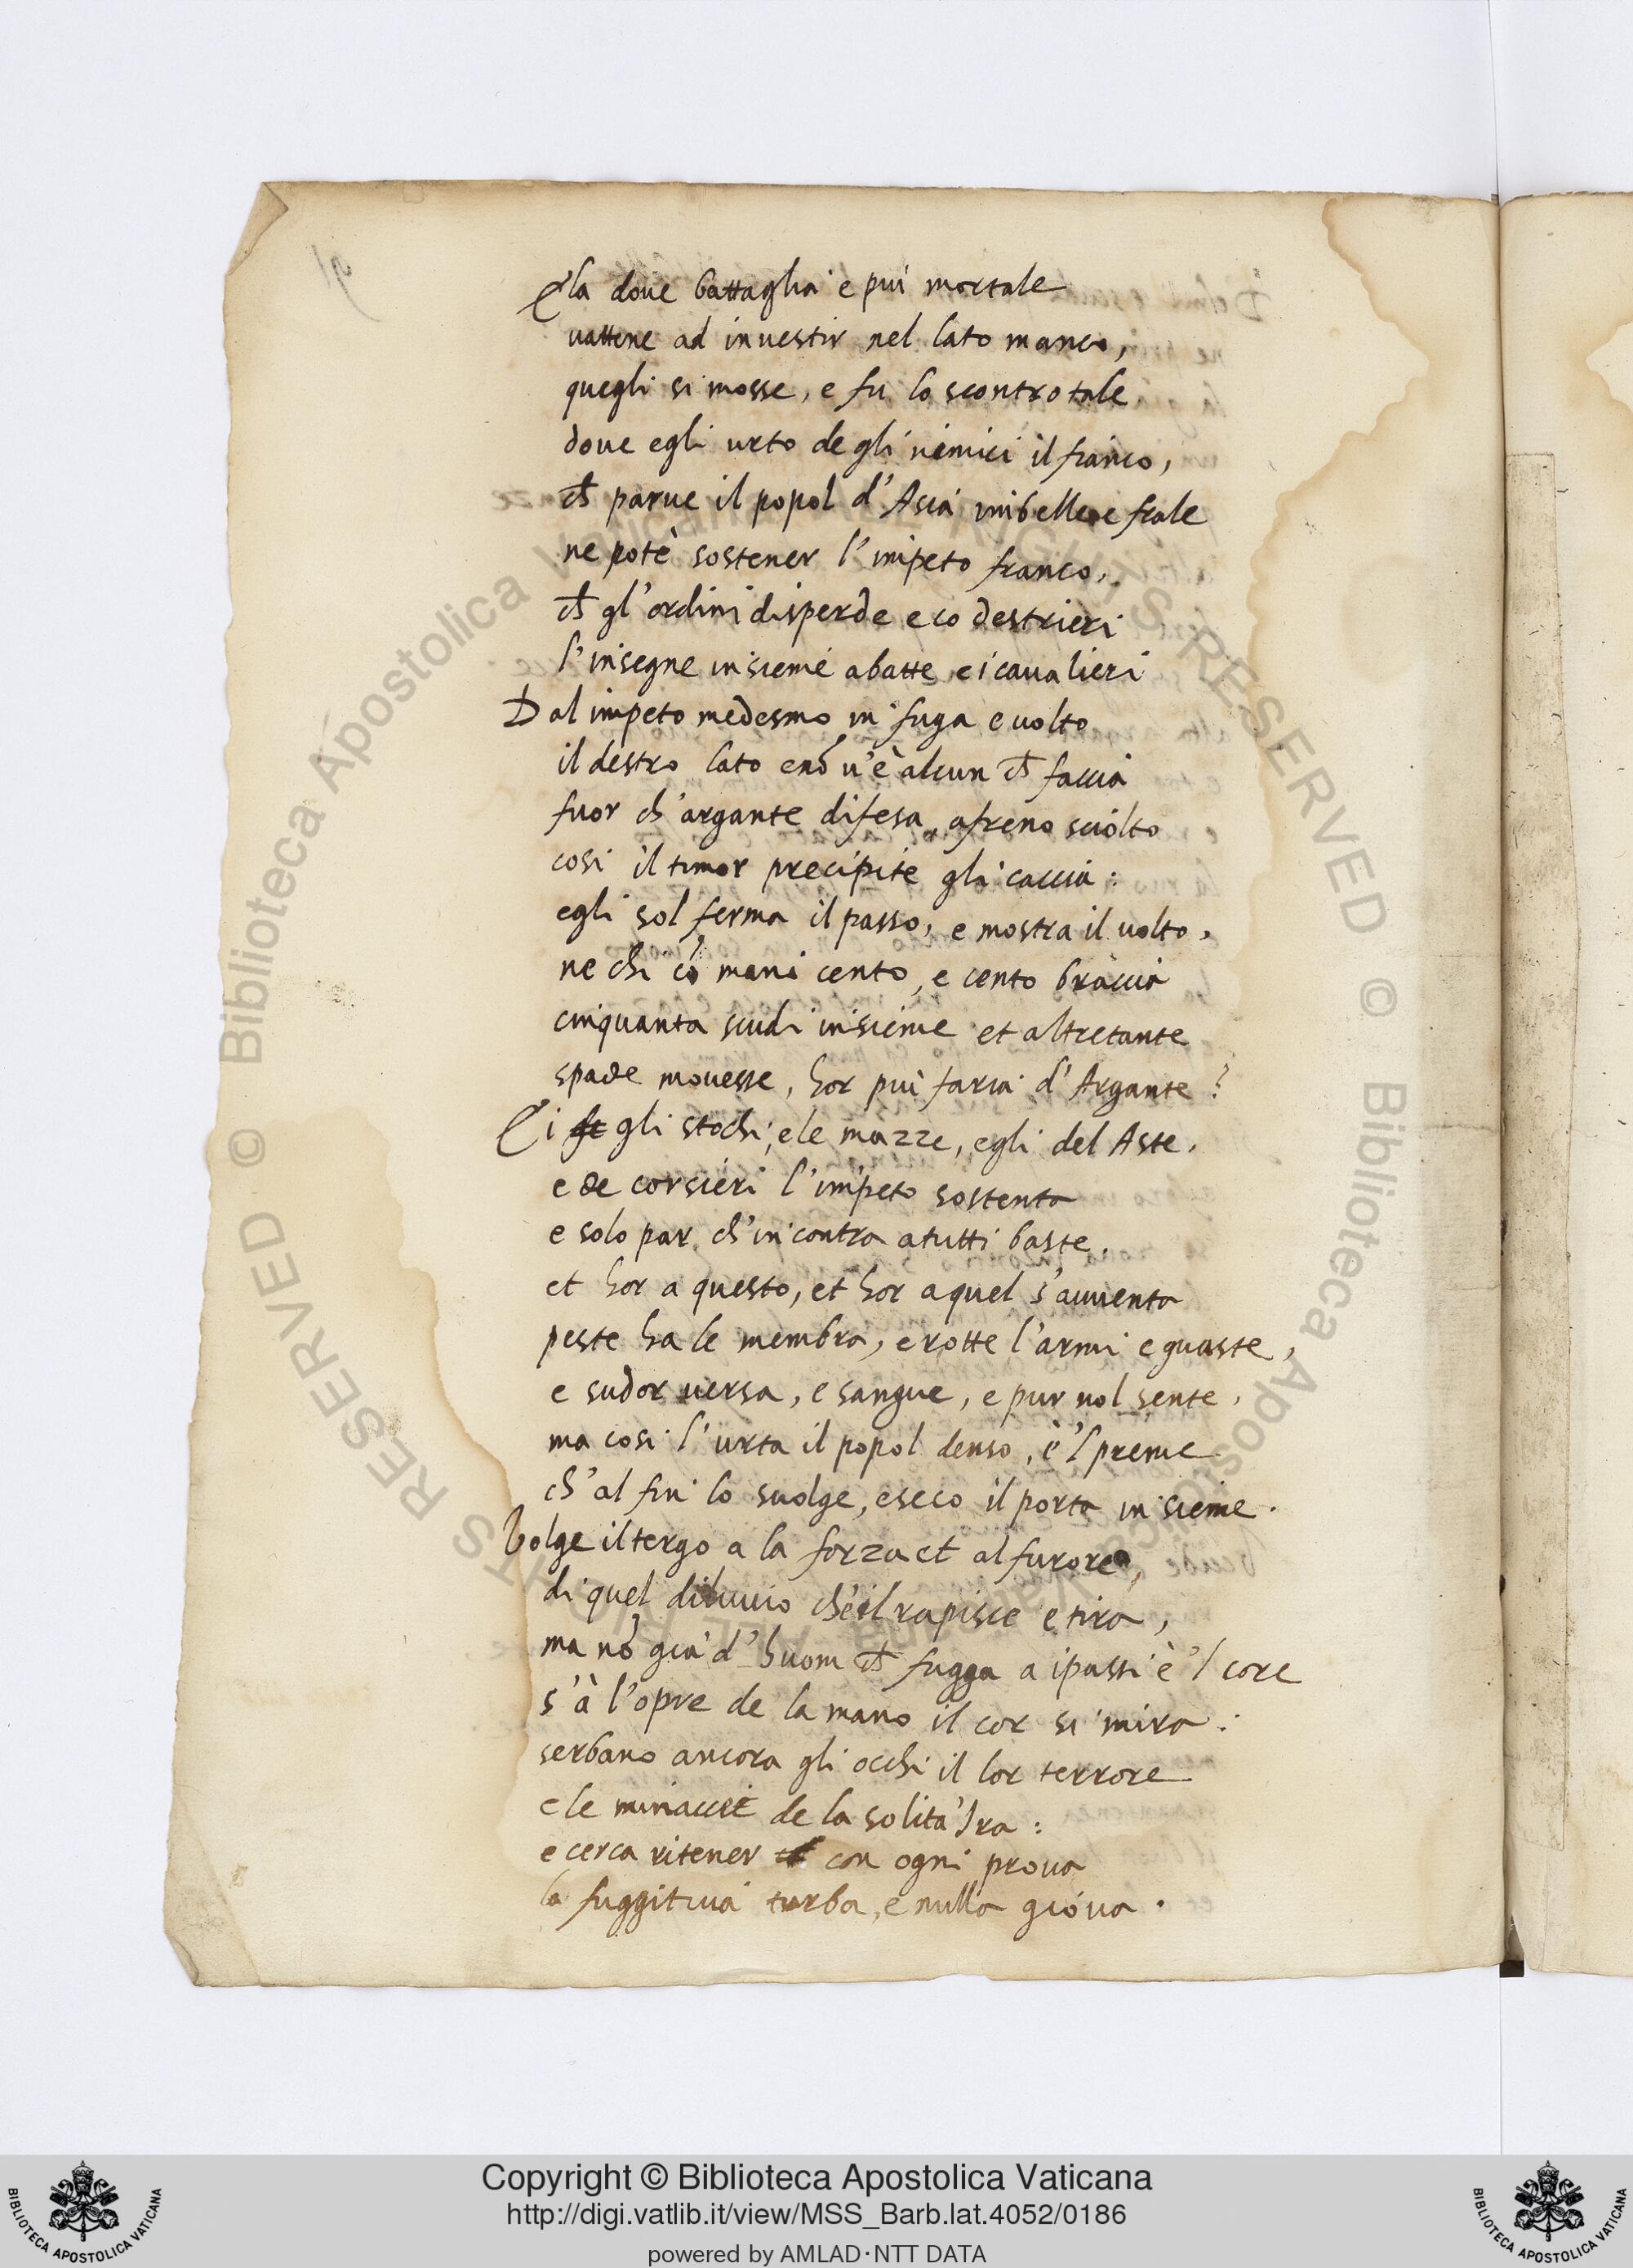 E la doue battaglia e piu mortale
uattene ad inuestir nel lato manco,
quegli si mosse, e fu lo scontro tale
doue egli urto de gli nemici il fianco,
ch parue il popol d'Asia imbelle e frale
ne potè sostener l'impeto franco,
ch gl'ordini disperde e co destrieri
l'insegne insieme abatte e i caualieri
Dal impeto medesmo in fuga e uolto
il destro lato e nō u'è alcun ch faccia
fuor ch'argante difesa, afreno sciolto
cosi il timor precipite gli caccia:
egli sol ferma il passo, e mostra il uolto,
ne chi cō mani cento, e cento braccia
cinquanta scudi insieme et altretante
spade mouesse, hor piu faria d'Argante?
Ei gli stochi, e le mazze, egli del Aste,
e de corsieri l'impeto sostenta
e solo par ch'incontra a tutti baste,
et hor a questo, et hor a quel s'auuenta
peste ha le membra, e rotte l'armi e guaste,
e sudor uersa, e sangue, e pur nol sente,
ma cosi l'urta il popol denso, e'l preme
ch'al fin lo suolge, e seco il porta insieme.
Volge il tergo a la forza et al furore,
di quel diluuio che'il rapisce e tira,
ma nō gia d'huom ch fugga a i passi è'l core
s'à l'opre de la mano il cor si mira:
serbano ancora gli occhi il lor terrore
e le minaccie de la solita Ira:
e cerca ritener con ogni proua
la fuggitiua turba, e nulla gioua.
Copyright © Biblioteca Apostolica Vaticana
http://digi.vatlib.it/view/MSS_Barb.lat.4052/0186
powered by AMLAD·NTT DATA
BIBLIOTECA APOSTOLICA VATICANA
BIBLIOTECA APOSTOLICA VATICANA